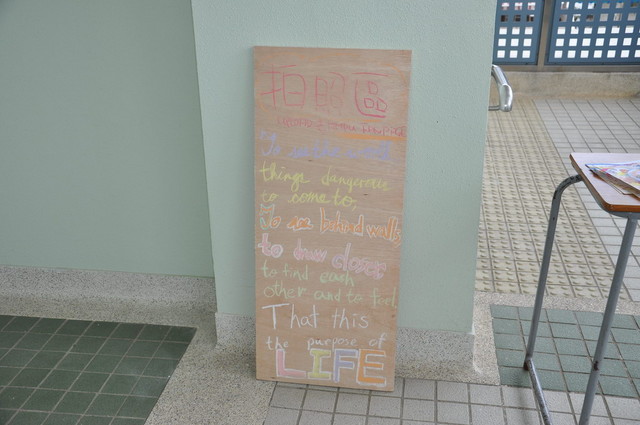 拍照區
"To see the world,
things dangerous
to come to,
To see behind walls
to draw closer
to find each
other and to feel
That this
the purpose of
LIFE